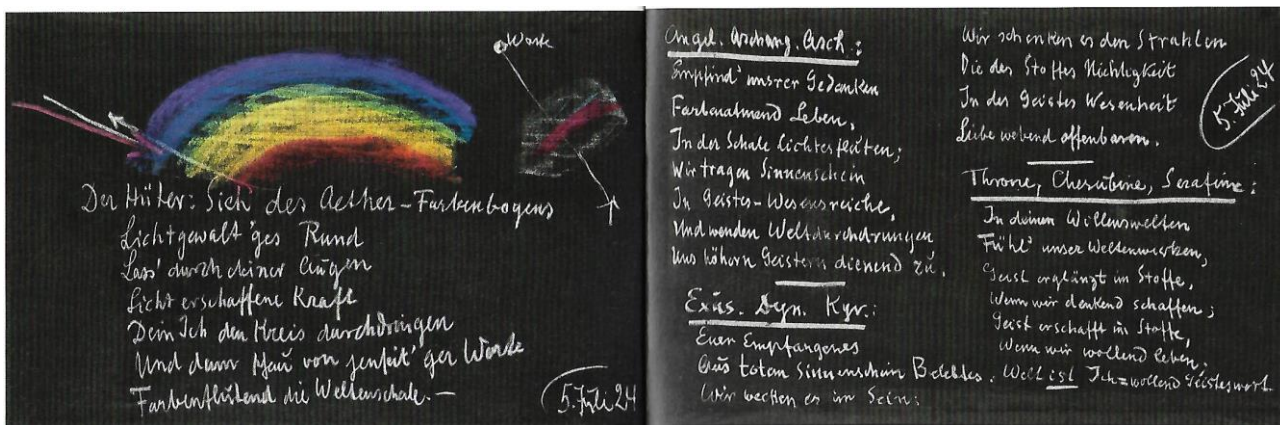 Warte
Der Hüter: Sieh des Aether-Farbenbogens
Lichtgewalt'ges Rund
Lass' durch deiner Augen
Lichterschaffene Kraft
Dein Ich den Kreis durchdringen
Und dann schau von jenseit'ger Warte
Farbenflutend die Weltenschale. —
5. Juli 24
Angel. Archang. Arch.:
Empfind' unsrer Gedanken
Farbenatmend Leben,
In der Schale Lichtesfluten;
Wir tragen Sinnenschein
In Geistes-Wesensreiche,
Und wenden Weltdurchdrungen
Uns höhern Geistern dienend zu.
Exus. Dyn. Kyr.:
Euer Empfangenes
Aus totem Sinnenschein Belebtes.
Wir wecken es im Sein:
Wir schenken es den Strahlen
Die des Stoffes Nichtigkeit
In des Geistes Wesenheit
Liebe webend offenbaren.
5. Juli 24
Throne, Cherubine, Serafine:
In deinen Willenswelten
Fühl' unser Weltenwirken,
Geist erglänzt im Stoffe,
Wenn wir denkend schaffen;
Geist erschafft im Stoffe,
Wenn wir wollend leben,
Welt ist Ich=wollend Geisteswort